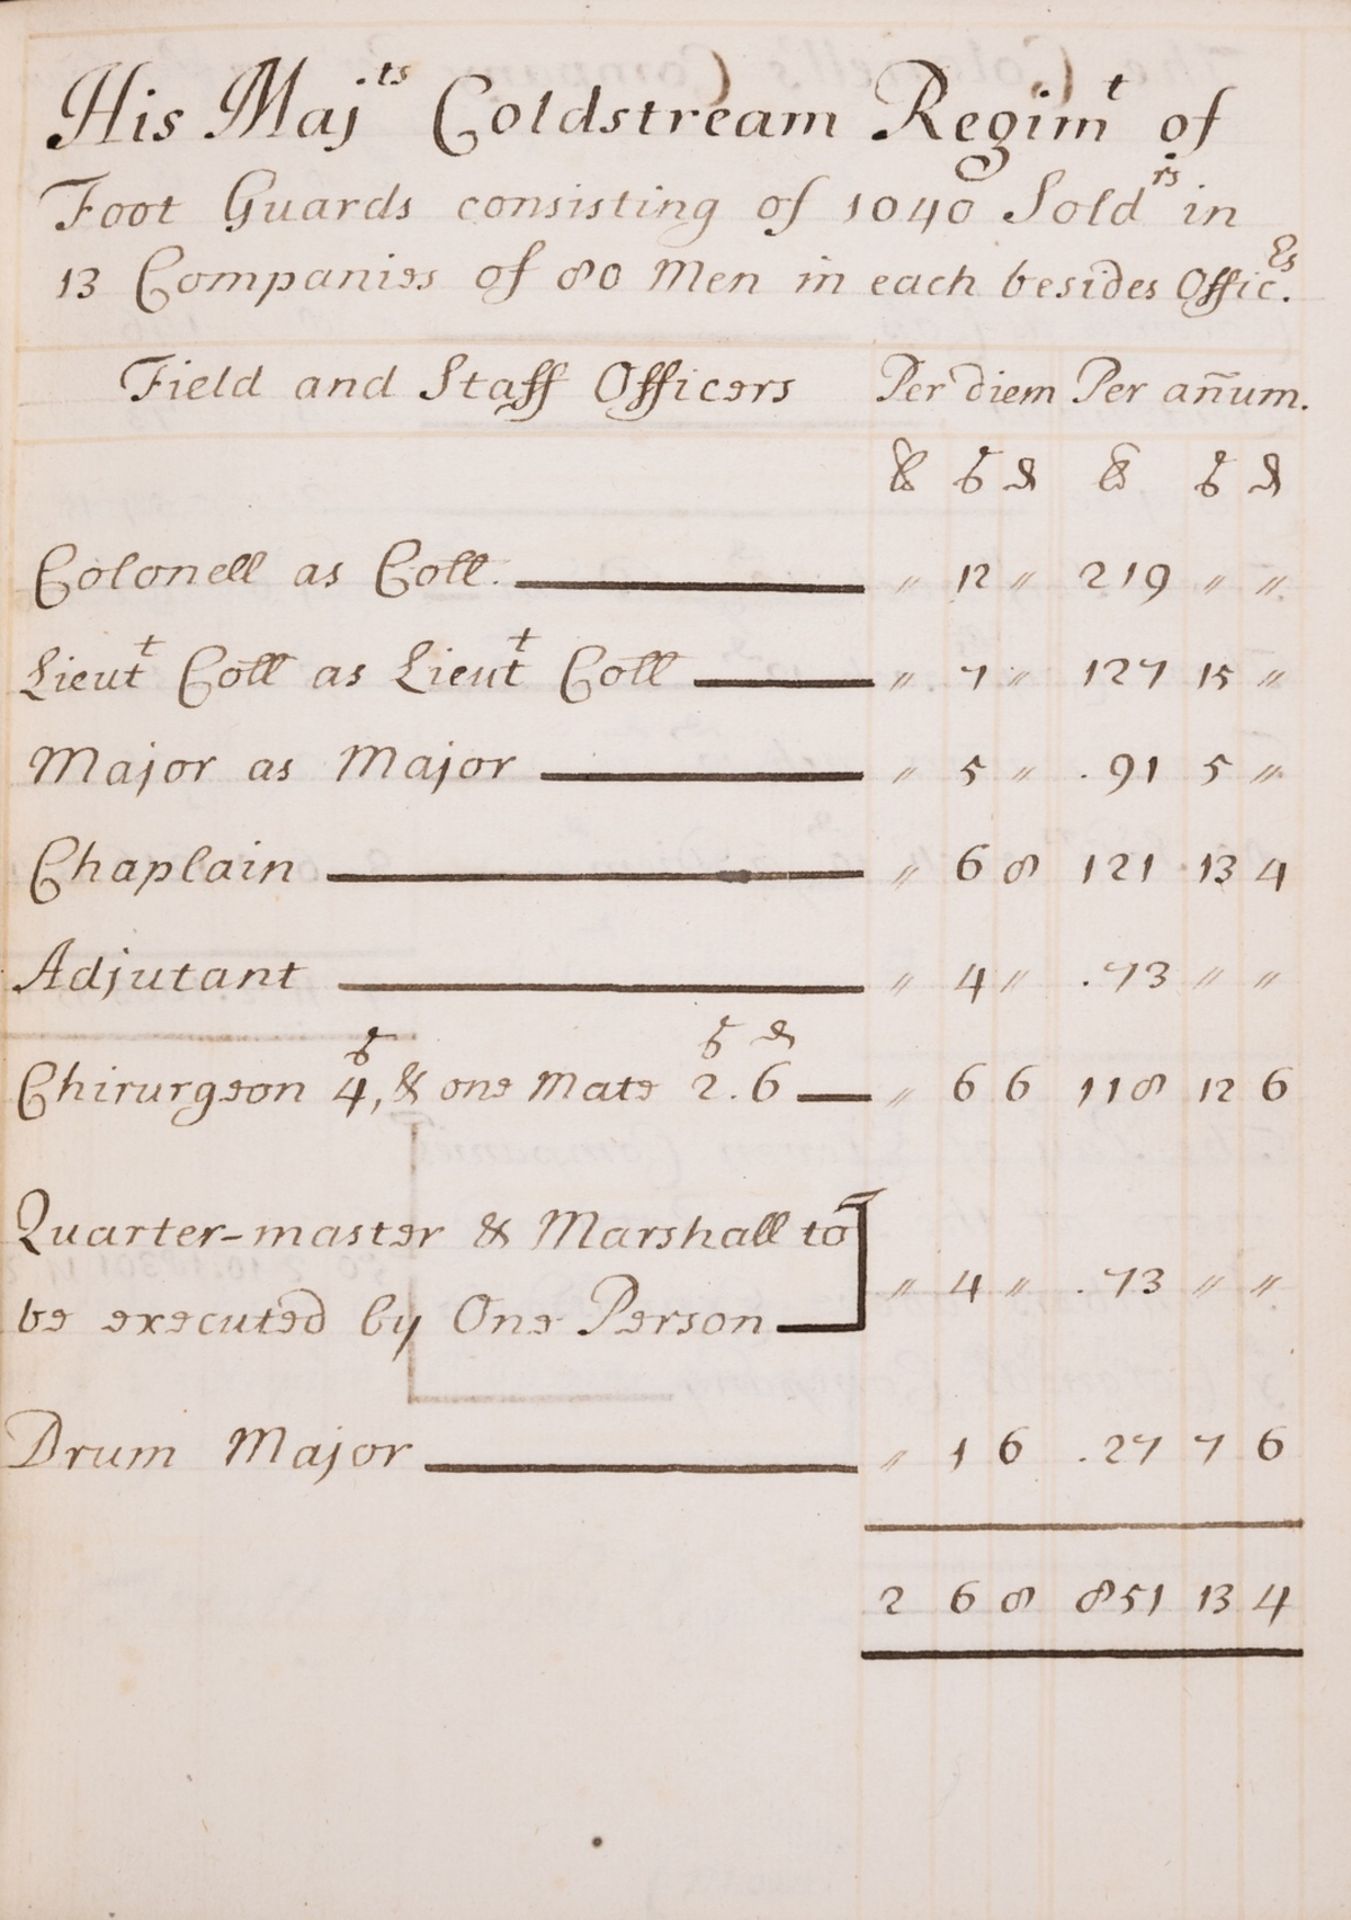 His Maj.ts Coldstream Regimt of
Foot Guards consisting of 1040 Soldrs in
13 Companies of 80 Men in each besides Offic.es
Field and Staff Officers Per diem Per añum.
£ s d £ s d
Colonell as Coll. " 12 " 219 " "
Lieutt Coll as Lieutt Coll " 7 " 127 15 "
Major as Major " 5 " .91 5 "
Chaplain " 6 8 121 13 4
Adjutant " 4 " .73 " "
s s d
Chirurgeon 4, & one Mate 2.6 " 6 6 118 12 6
Quarter-master & Marshall to
be executed by One Person " 4 " .73 " "
Drum Major " 1 6 .27 7 6
2 6 8 851 13 4